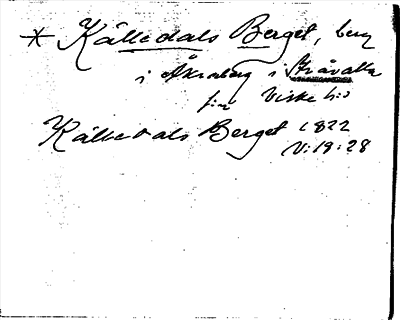 * Källedals Berget, berg
i Åkraberg i Stråvalla
sn Viske hd
Källedals Berget 1822
V:19:28